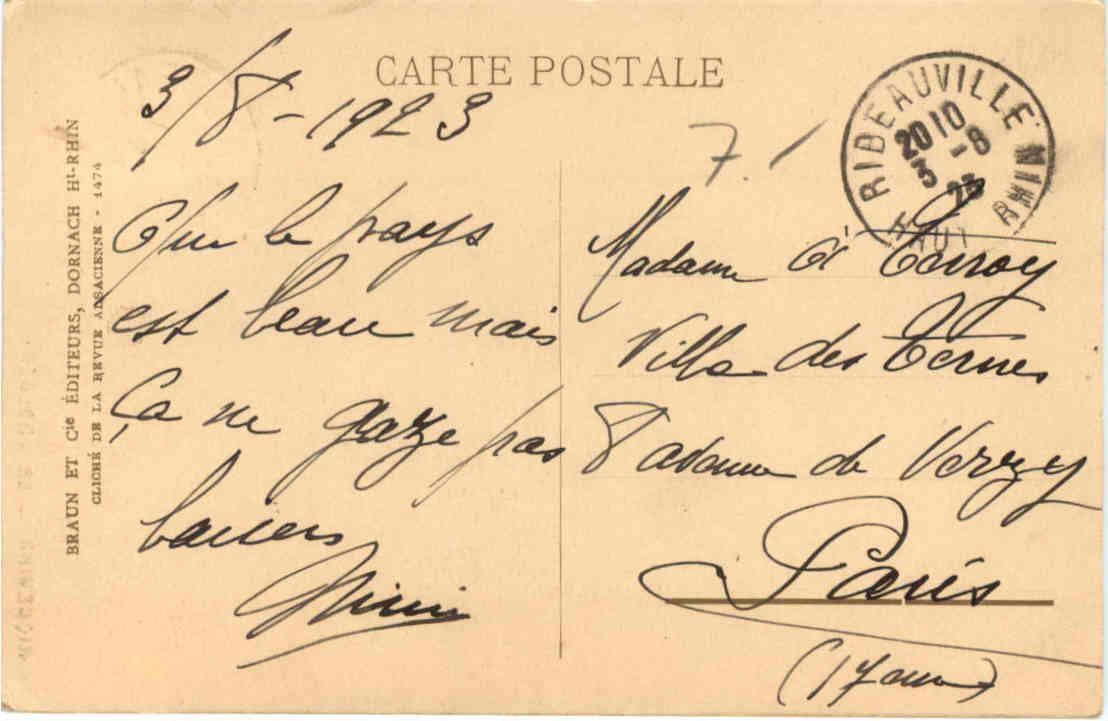 CARTE POSTALE
BRAUN ET Cie ÉDITEURS, DORNACH Ht-RHIN
CLICHÉ DE LA REVUE ALSACIENNE - 1474
3/8-1923
Que le pays
est beau mais
Ça ne gaze pas
baisers
7.1
RIBEAUVILLE
20 10
3 - 8
23
HAUT RHIN
Madame
Villa des Ternes
8 avenue de Verzy
Paris
(17